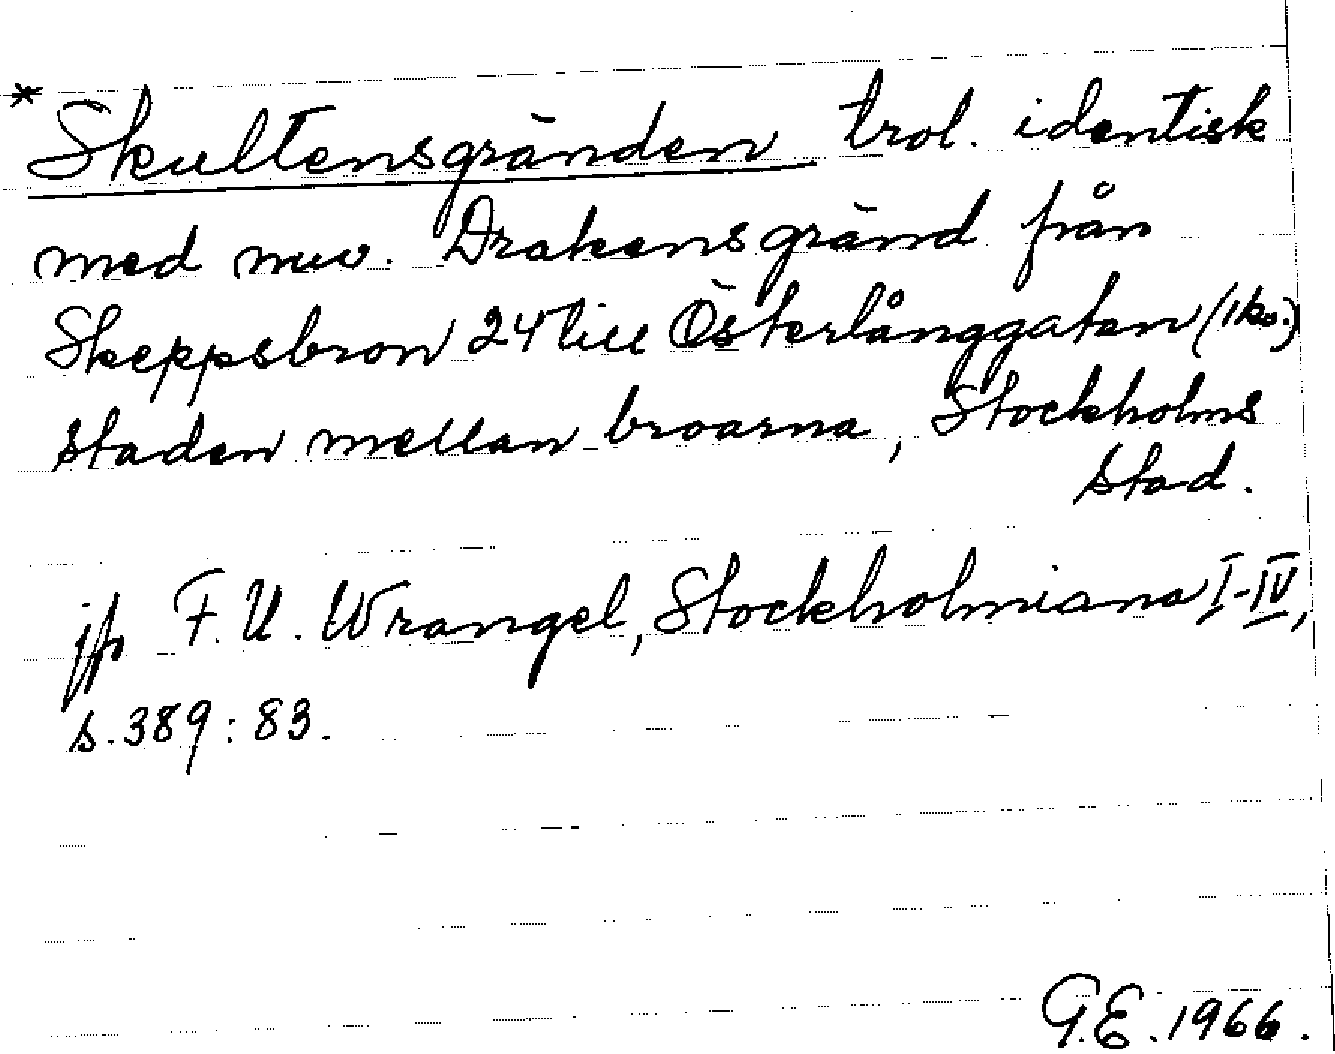 * Skultensgränden trol. identisk
med nuv. Drakens gränd från
Skeppsbron 24 till Österlånggatan (1ko.)
staden mellan broarna, Stockholms
stad.
jfr F. U. Wrangel, Stockholmiana I-IV,
s. 389: 83.
G.E. 1966.